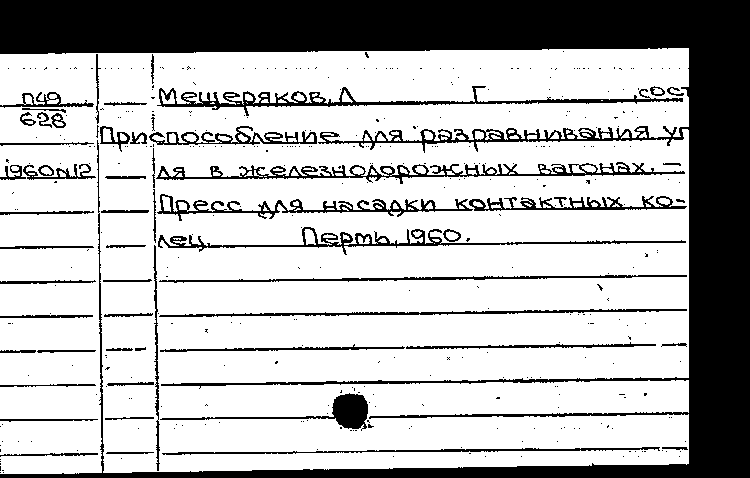 П49
628
Мещеряков, Л Г ,сост
Приспособление для разравнивания уг
1960 N12
ля в железнодорожных вагонах. —
Пресс для насадки контактных ко-
лец. Пермь, 1960.